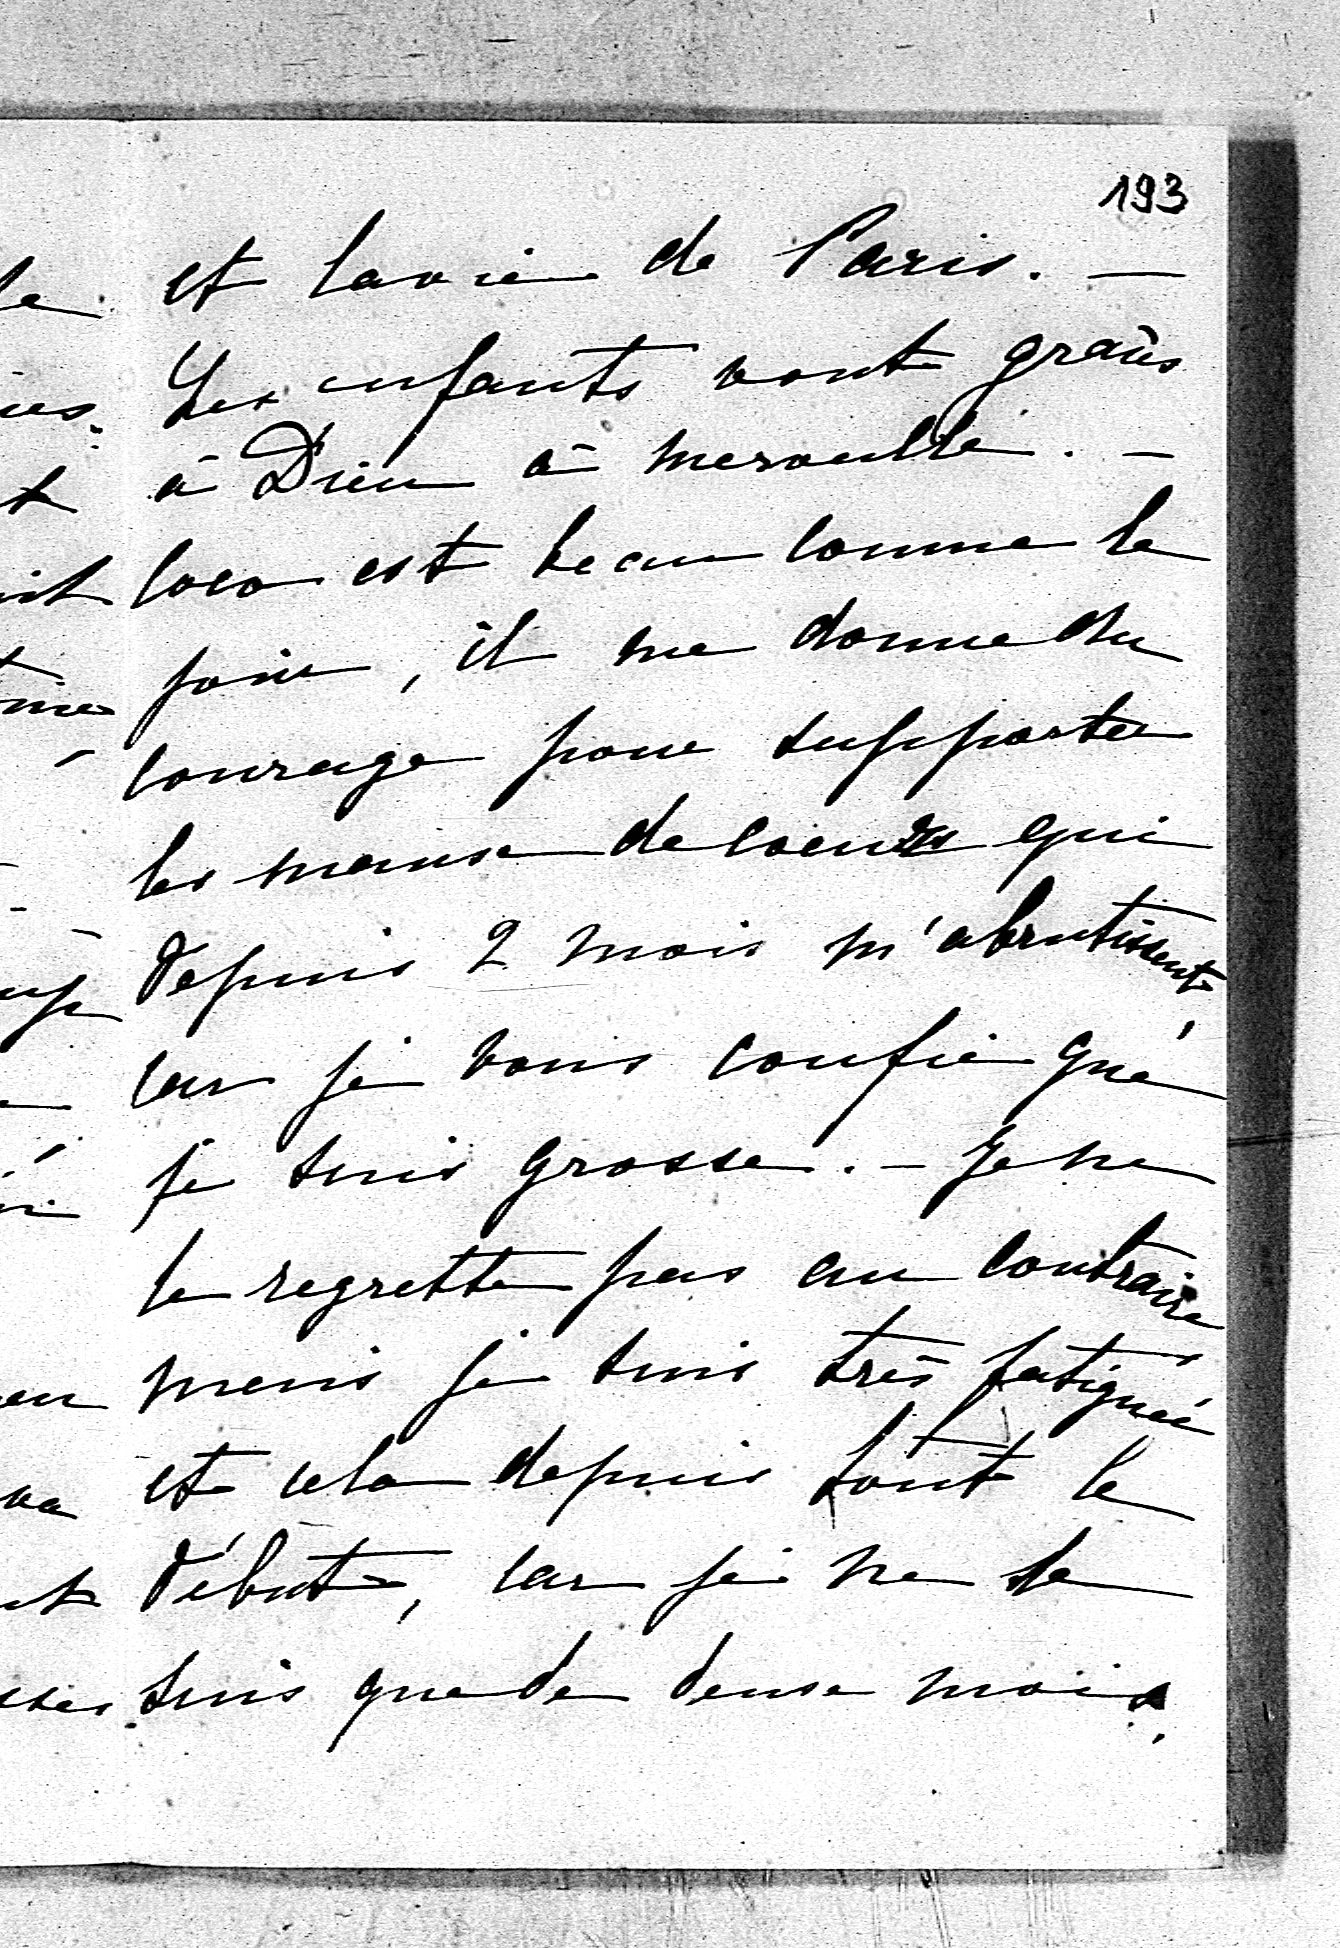 193
et la vie de Paris. —
Les enfants vont grâces
à Dieu à merveille. —
Coco est beau comme le
jour, il me donne du
courage pour supporter
les maux de coeurs qui
depuis 2 mois m'abrutissent,
car je vous confie que
je suis grosse. — Je ne
le regrette pas au contraire
mais je suis très fatiguée
et cela depuis tout le
début, car je ne le
suis que de deux mois.